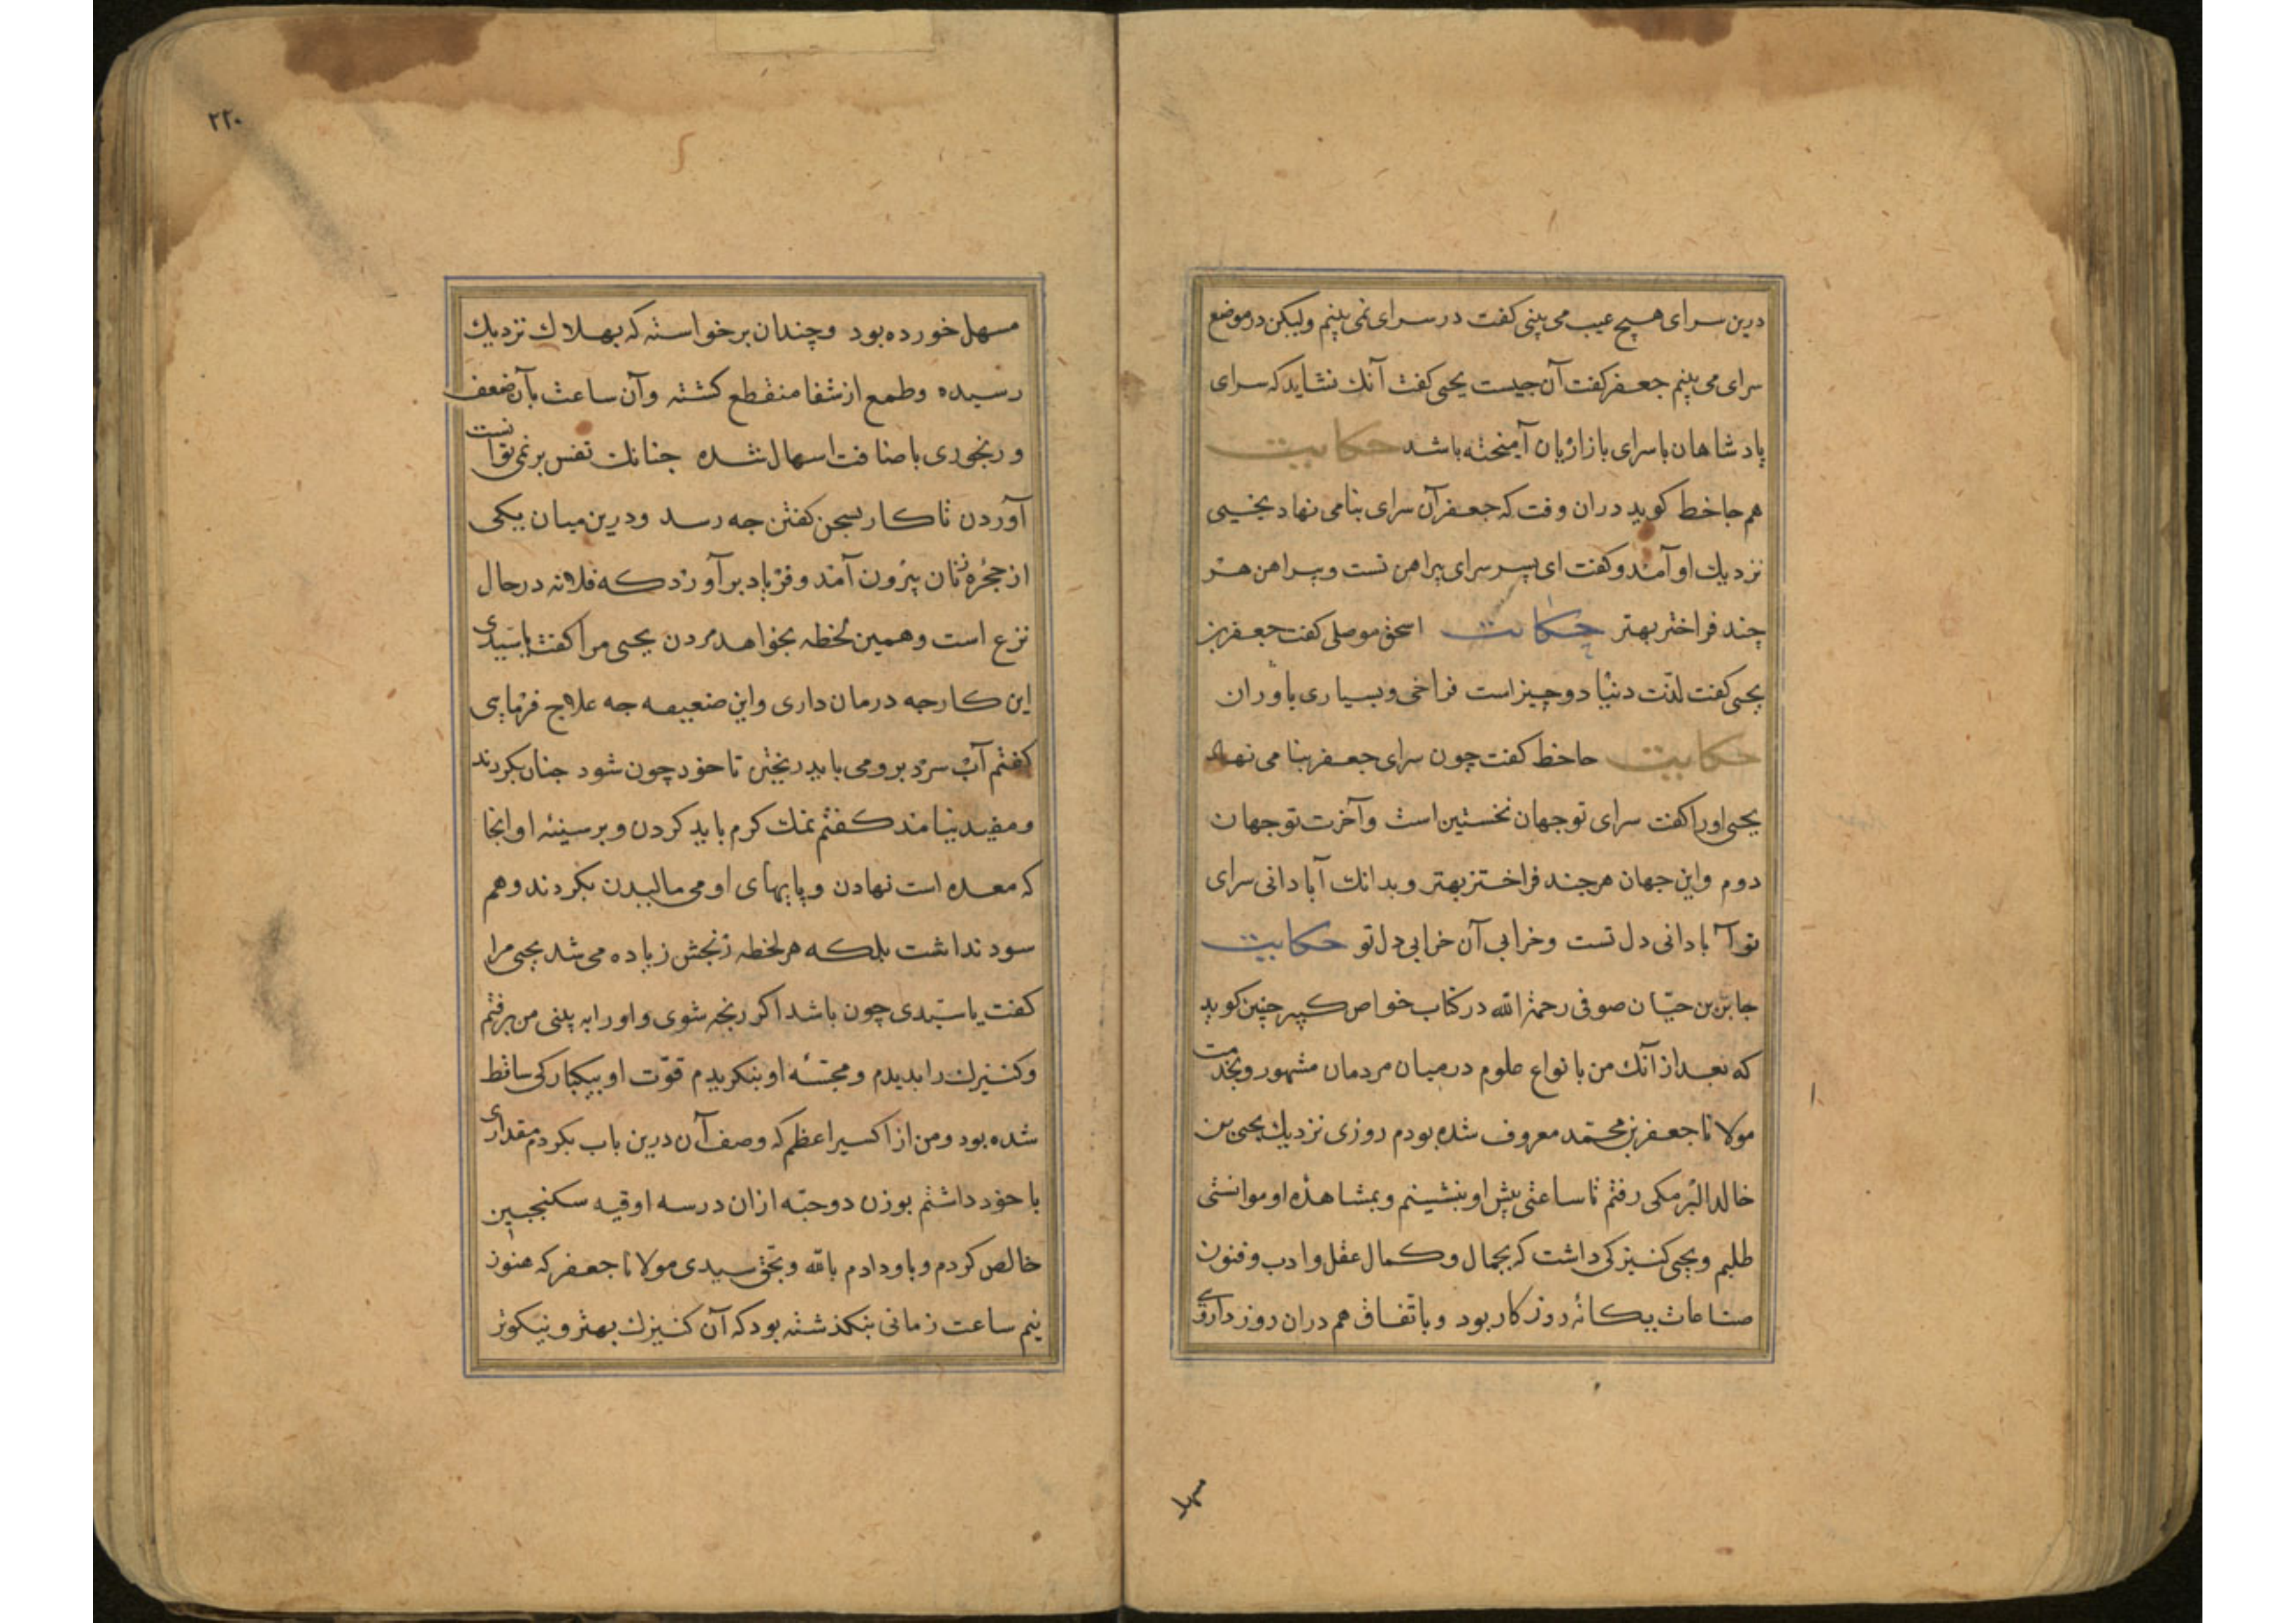 درین سرای هیچ عیب می بینی کفت در سرای نمی بینم ولیکن در موضع
سرای می بینم جعفر کفت آن جیست یحیی کفت آنک نشاید که سرای
پادشاهان با سرای بازاریان آمیخته باشد حکایت
هم جاخط کوید دران وقت که جعفر آن سرای بنا می نهاد یحیی
نزدیك او آمد وکفت ای پسر سرای پیراهن تست وپیراهن هر
چند فراختر بهتر حکایت اسحق موصلی کفت جعفر بن
یحیی کفت لذّت دنیا دو چیز است فراخی وبسیاری یاوران
حکایت جاخط کفت چون سرای جعفر بنا می نهاد
یحیی اورا کفت سرای تو جهان نخستین است وآخرت تو جهان
دوم واین جهان هر جند فراختر بهتر وبدانك آبادانی سرای
تو آبادانی دل تست وخرابی آن خرابی دل تو حکایت
جابر بن حیّان صوفی رحمة الله در کتاب خواص کبیر چنین کوید
که بعد از آنك من بانواع علوم درمیان مردمان مشهور وبخدمت
مولانا جعفر بن محمّد معروف شده بودم روزی نزدیك یحیی بن
خالد البرمکی رفتم تا ساعتی پیش او بنشینم وبمشاهده او موانستی
طلبم ویحیی کنیزکی داشت که بجمال وکمال عقل وادب وفنون
صناعات یکانهٔ روزکار بود وباتّفاق هم دران روز داروی
مسهل
۲۲۰
مسهل خورده بود وچندان برخواسته که بهلاك نزدیك
رسیده وطمع از شفا منقطع کشته وآن ساعت بآن ضعف
ورنجوری باضافت اسهال شده جنانك نفس بر نمی توانست
آوردن تا کار بسخن کفتن جه رسد ودرین میان یکی
از حجرهٔ زنان بیرون آمد وفریاد برآورد که فلانه درحال
نزع است وهمین لحظه بخواهد مردن یحیی مرا کفت یا سیّدی
این کار جه درمان داری واین ضعیفه جه علاج فرمایی
کفتم آب سرد برو می باید ریختن تا خود چون شود جنان بکردند
ومفید نیامد کفتم نمك کرم باید کردن وبر سینه او آنجا
که معده است نهادن وپایهای او می مالیدن بکردند وهم
سود نداشت بلکه هر لحظه رنجش زیاده می شد یحیی مرا
کفت یا سیّدی چون باشد اکر رنجه شوی واورا به بینی من برفتم
وکنیزك را بدیدم ومجسّهٔ او بنکریدم قوّت او بیکبارکی ساقط
شده بود ومن از اکسیر اعظم که وصف آن درین باب بکردم مقداری
با خود داشتم بوزن دو حبّه ازان در سه اوقیه سکنجبین
خالص کردم وباو دادم بالله وبحق سیدی مولانا جعفر که هنوز
نیم ساعت زمانی بنکذشته بود که آن کنیزك بهتر ونیکوتر